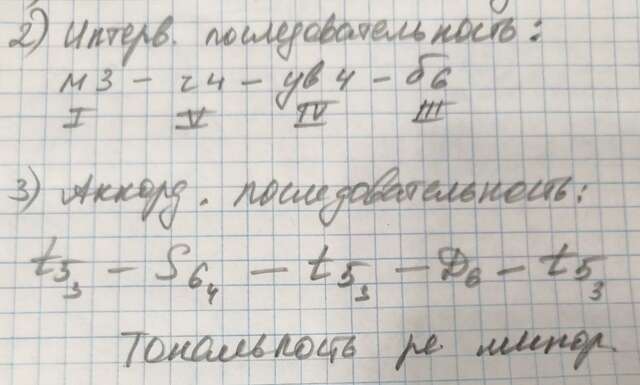 2) Интерв. последовательность:
м3 – ч4 – ув4 – б6
I V IV III
3) Аккорд. последовательность:
t53 – S64 – t53 – D6 – t53
Тональность ре минор.